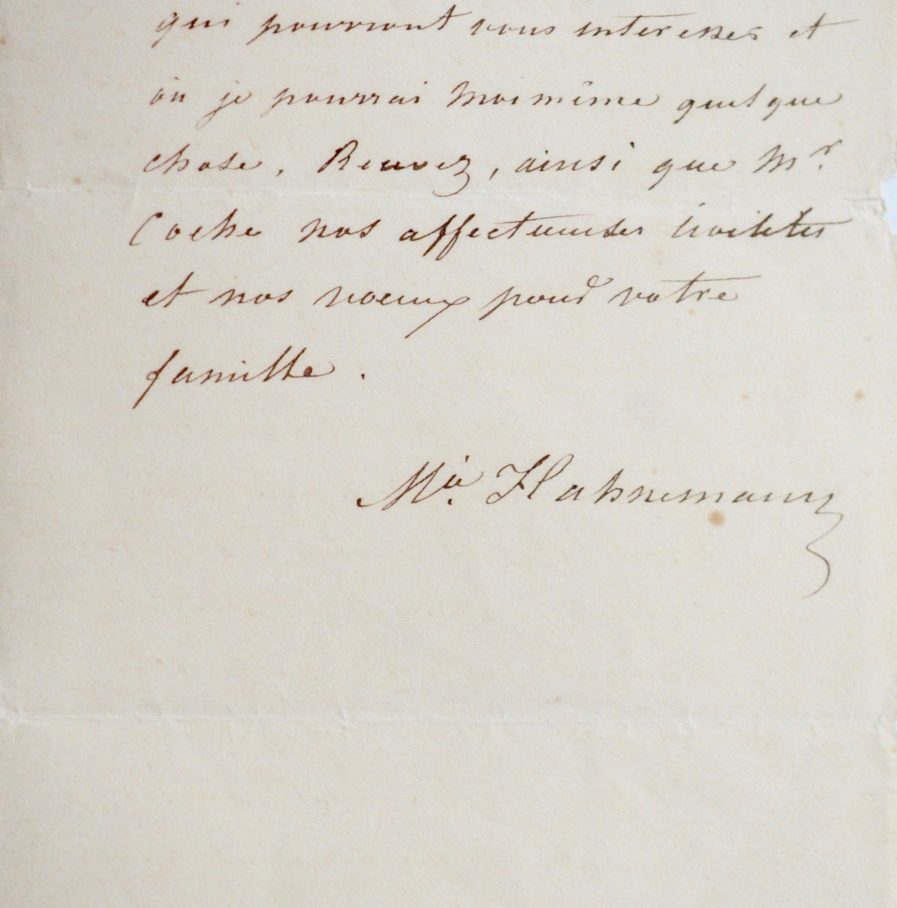 qui pourront vous interesser et
où je pourrai moi même quelque
chose, Recevez, ainsi que Mr.
Coche nos affectueuses civilités
et nos voeux pour votre
famille.
Mie. Hahnemann